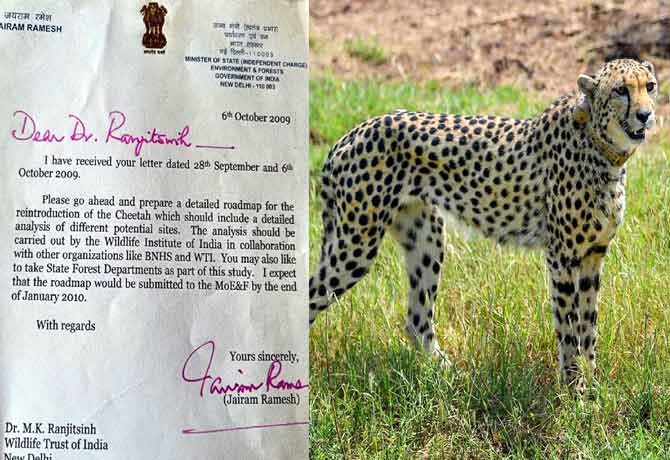 जयराम रमेश
JAIRAM RAMESH
राज्य मंत्री (स्वतंत्र प्रभार)
पर्यावरण एवं वन
भारत सरकार
नई दिल्ली-110003
MINISTER OF STATE (INDEPENDENT CHARGE)
ENVIRONMENT & FORESTS
GOVERNMENT OF INDIA
NEW DELHI - 110 003
6th October 2009
Dear Dr. Ranjitsinh
I have received your letter dated 28th September and 6th
October 2009.
Please go ahead and prepare a detailed roadmap for the
reintroduction of the Cheetah which should include a detailed
analysis of different potential sites. The analysis should be
carried out by the Wildlife Institute of India in collaboration
with other organizations like BNHS and WTI. You may also like
to take State Forest Departments as part of this study. I expect
that the roadmap would be submitted to the MoE&F by the end
of January 2010.
With regards
Yours sincerely,
Jairam Rames
(Jairam Ramesh)
Dr. M.K. Ranjitsinh
Wildlife Trust of India
New Delhi